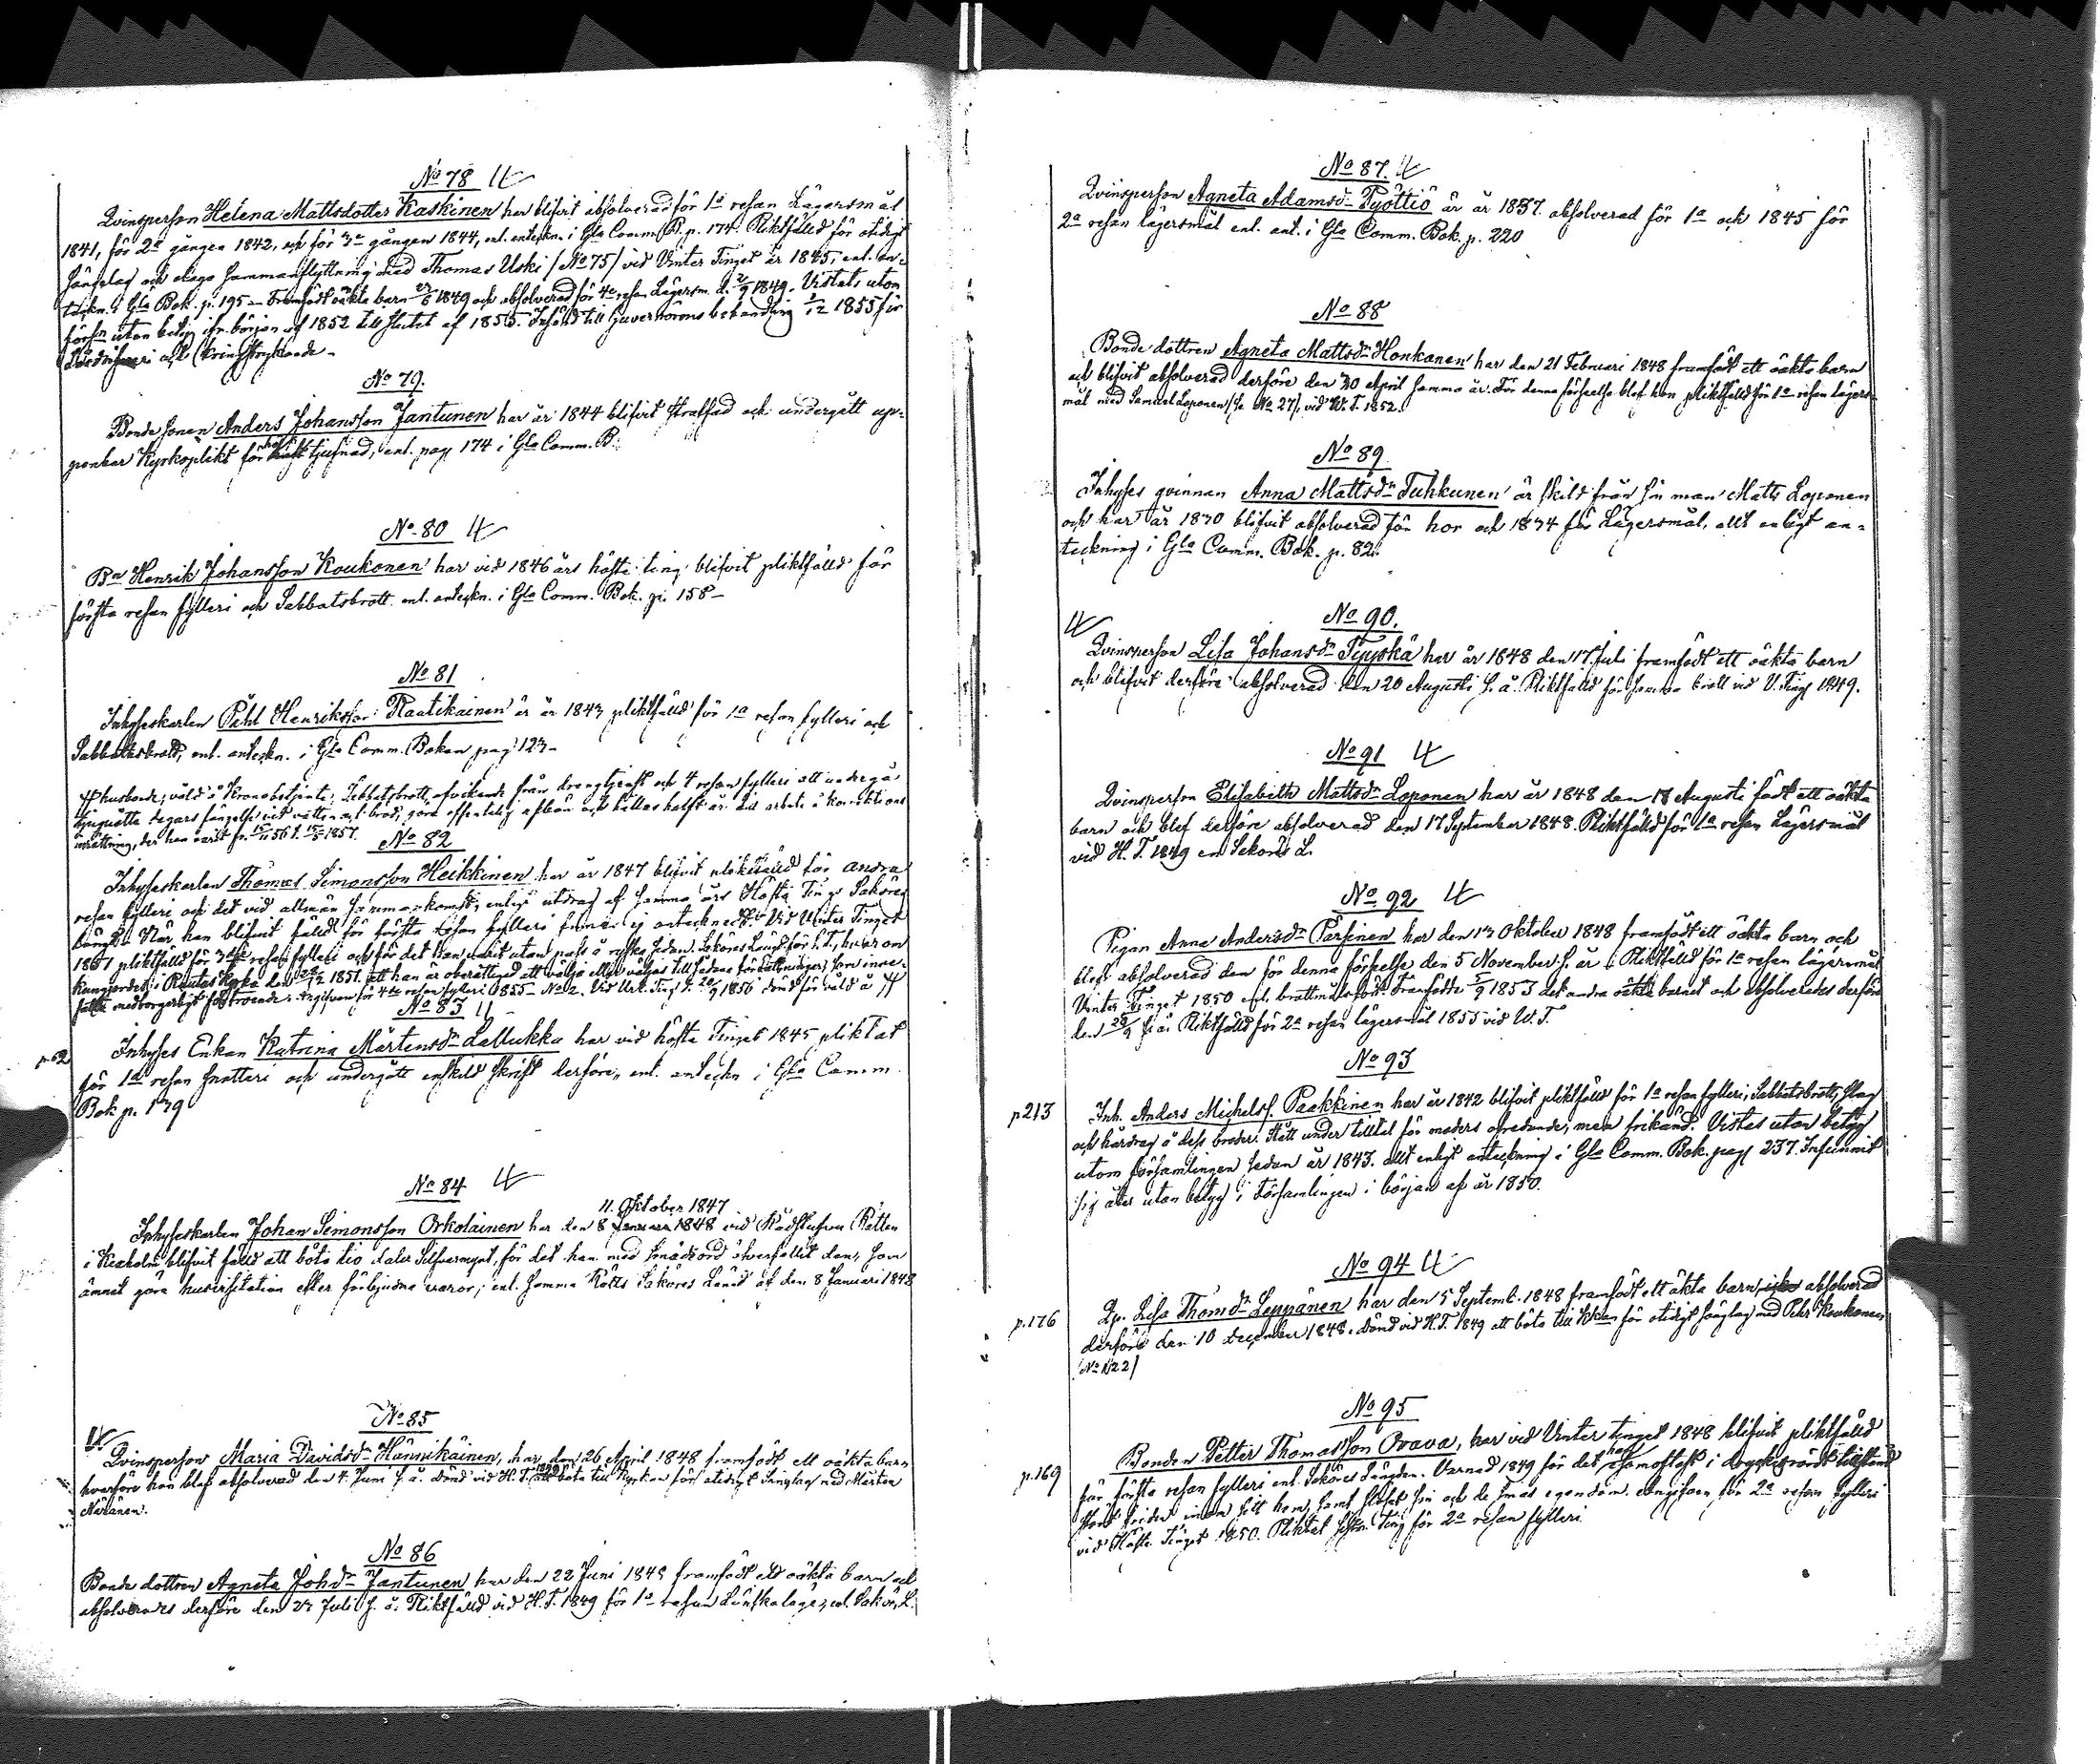 No 78
Qvinsperson Helena Mattsdotter Kaskinen har blifvit absolverad för 1a resan Lägersmål
1841, för 2a gången 1842, och för 3a gången 1844, enl. anteckn. i Gla Comm. B. p. 174. Pliktfälld för otidigt
sänglag och olaga sammanflyttning med Thomas Uski (No 75) vid Vinter Tinget år 1845, enl. an-
teckn. i Gla Bok. p. 195 - Framfödt oäkta barn 1849 och absolverad för 4e resan Lägersm. d. 1849. Vistats utom
förs:n utan betyg ifr. början af 1852 till slutet af 1855. Införd till Guvernörens behandling 1855 för
och kringstrykande -
No 79.
Bondesonen Anders Johansson Jantunen har år 1844 blifvit straffad och undergått up-
penbar Kyrkoplikt för tjufnad, enl. pag 174 i Gla Comm. B.
No 80
Bn Henrik Johansson Koukonen har vid 1846 års höste ting blifvit pliktfälld för
första resan fylleri och Sabbatsbrott enl. anteckn. i Gla Comm. Bok. p. 158 -
No 81
Inhyseskarlen Pehl Henriksson Rautikainen är år 1843 pliktfälld för 1a resan fylleri och
Sabbatsbrott, enl. anteckn. i Gla Comm. Boken pag 123 -
husbonde, våld å Kronobetjente, Sabbatsbrott, afvikande från drengtjenst och 4 resan fylleri att undergå
tjuguåtta dagars fängelse vid vatten och bröd, göra offentelig afbön och hållas halft år till arbete å korrektions
inrättning, der han varit fr. 56 t. 1857.
No 82
Inhyseskarlen Thomas Simonsson Heikkinen har år 1847 blifvit pliktfälld för andra
resan fylleri och det vid allmän sammankomst, enligt utdrag af samma års Höste Tings Saköres
längd. När han blifvit fälld för första resan fylleri finnes ej antecknadt. Vid Vinter Tinget
1851 pliktfälld för 3dje resan fylleri och för det han varit utan pass å ryska sidan. Saköres Längd för h.t., hvarom
kungjordes i Rautus kyrka den 1851. att han är oberättigad att välja eller väljas till sådane förrättningar, som inne-
fatta medborgerligt förtroende. Angifven för 4de resan fylleri 1855 - No 2. Vid Urt. Ting d. 1856 dömd för våld å
No 83
p. 62
Inhyses Enkan Katrina Mårtensdr Lallukka har vid höste Tinget 1845 pliktat
för 1a resan snatteri och undergått enskild skrift derföre, enl. anteckn i Gla Comm.
Bok p. 139
No 84
11. Oktober 1847
Inhyseskarlen Johan Simonsson Orkolainen har den 8 Januari 1848 vid Rådstufvu Rätten
i Kexholm blifvit fälld att böta tio daler Silfvermynt, för det han med smädeord öfverfallit dem, som
ämnat göra husvisitation efter förbjudna varor, enl. samma Rätts Saköres Längd af den 8 Januari 1848
No 85
Qvinsperson Maria Davidsdr Hännikäinen, har den 26 April 1848 framfödt ett oäkta barn
hvarföre hon blef absolverad den 4. Juni s. å. Dömd vid H. T. 1849 att böta till Kyrkan för otidigt Sänglag med Mårten
No 86
Bonde dottren Agneta Johdr Jantunen har den 22 Juni 1848 framfödt ett oäkta barn och
absolverades derföre den 23 Juli s. å. Pliktfälld vid H. T. 1849 för 1a resan Lönskaläge, enl. Sakör. L.
No 87.
Qvinsperson Agneta Adamsdr Pyöttiö är år 1837. absolverad för 1a och 1845 för
2a resan lägersmål enl. ant. i Gla Comm. Bok. p. 220
No 88
Bonde dottren Agneta Mattsdr Honkanen har den 21 Februari 1848 framfödt ett oäkta barn
och blifvit absolverad derföre den 30 April samma år. För denna förseelse blef hon pliktfälld för 1a resan lägers-
mål med Samuel Loponen (se No 27), vid W. T. 1852.
No 89
Inhyses qvinnan Anna Mattsdr Tuhkunen är skild från sin man Matts Loponen
och har år 1830 blifvit absolverad för hor och 1834 för Lägersmål, allt enligt an-
teckning i Gla Comm. Bok. p. 82.
No 90.
Qvinsperson Lisa Johansdr Tyyskä har år 1848 den 17. Juli framfödt ett oäkta barn
och blifvit derföre absolverad den 20 Augusti s. å. Pliktfälld för samma brott vid V. Ting 1849.
No 91
Qvinsperson Elisabeth Mattsdr Loponen har år 1848 den 18 Augusti födt ett oäkta
barn och blef derföre absolverad den 17 September 1848. Pliktfälld för 1a resan Lägersmål
vid H. T. 1849 en Sakörs L.
No 92
Pigan Anna Andersdr Pärsinen har den 13 Oktober 1848 framfödt ett oäkta barn och
blef absolverad den för denna förseelse den 5 November s. år. Pliktfälld för 1a resan lägersmål
Vinter Tinget 1850 enl. brottmålsfört. Framfödde 5/9 1853 det andra oäkta barnet och absolverades derföre
den s. å. Pliktfälld för 2a resan lägersmål 1855 vid W. T.
No 93
p 213
Inh. Anders Michelss. Paakkinen har år 1842 blifvit pliktfälld för 1a resan fylleri, Sabbatsbrott, slag
och hårdrag å dess broder. Stått under tilltal för moders ofredande, men frikänd. Vistes utan betyg
utom församlingen sedan år 1843. allt enligt anteckning i Gla Comm. Bok. pag 237. Infunnit
sig åter utan betyg i Församlingen i början af år 1850.
No 94
p. 176
Qp. Lisa Thomdr Leppänen har den 5 Septemb. 1848 framfödt ett oäkta barn, absolverad
derföre den 10 December 1848. Dömd vid H. T. 1849 att böta till Kkan för otidigt sänglag med Pehr Koukonen
(No 122)
No 95
p. 169
Bonden Petter Thomasson Orava, har vid Vinter tinget 1848 blifvit pliktfälld
för första resan fylleri enl. Saköres Längden. Varnad 1849 för det han oftast i tillstånd
stört friden inom sitt hem, samt slösat sin och de sinas egendom. Angifven för 2a resan fylleri
vid Höste Tinget 1850. Pliktat Ting för 2a resan fylleri.